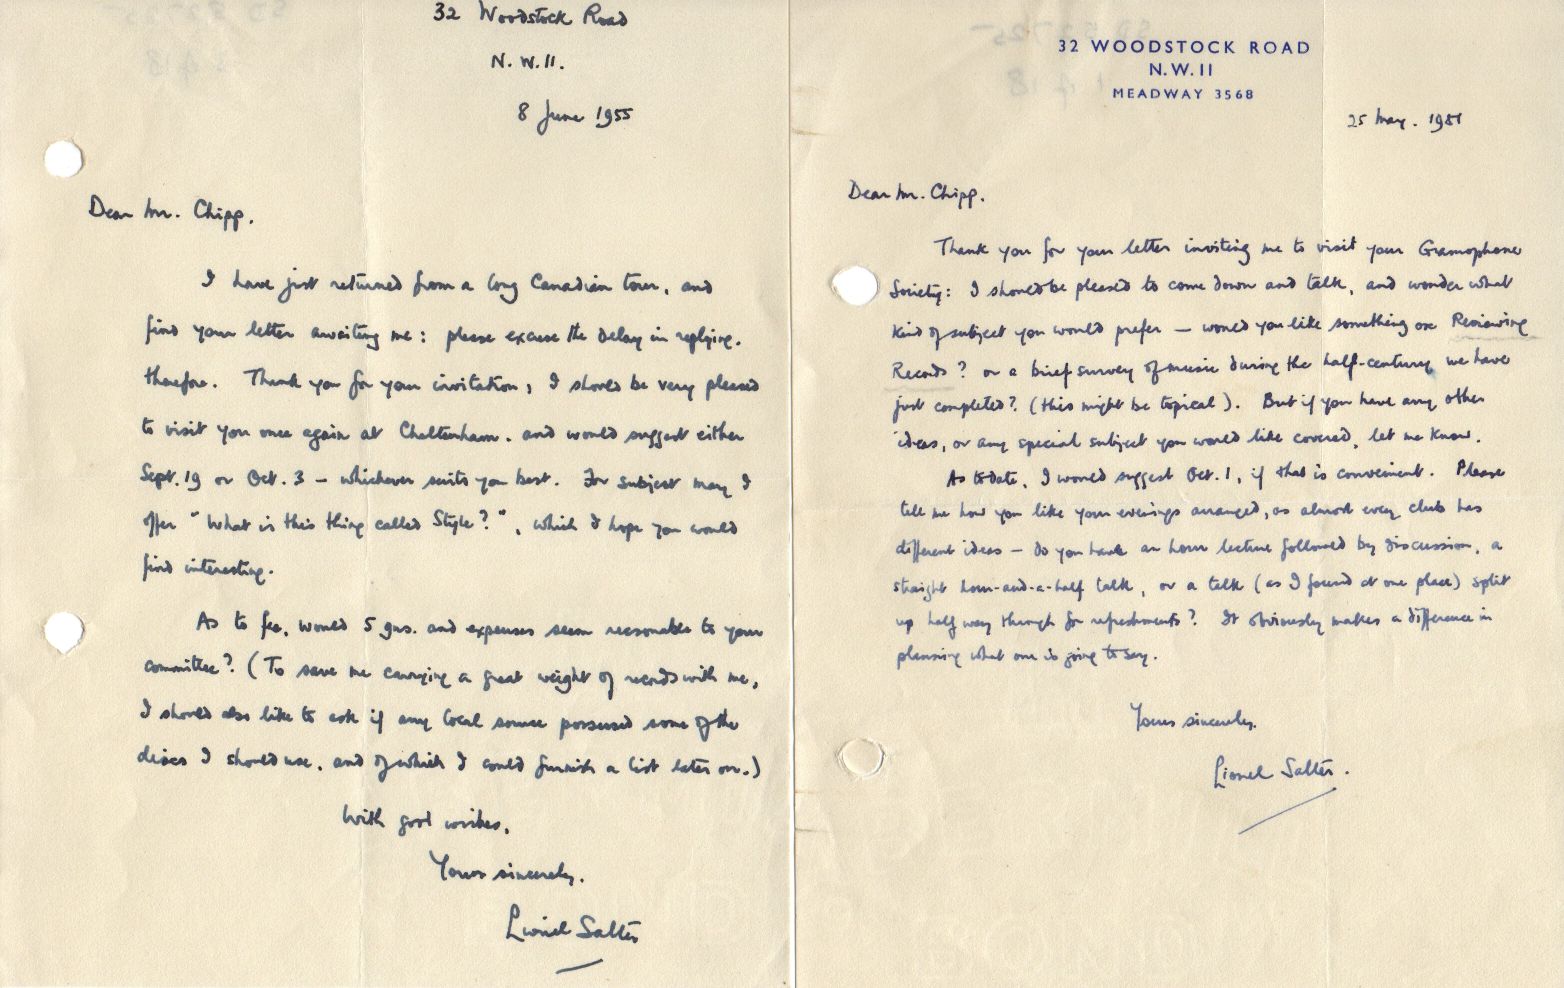 32 Woodstock Road
N.W.11.
8 June 1955
Dear Mr. Chipp,
I have just returned from a long Canadian tour, and
find your letter awaiting me: please excuse the delay in replying,
therefore. Thank you for your invitation; I should be very pleased
to visit you once again at Cheltenham, and would suggest either
Sept. 19 or Oct. 3 – whichever suits you best. For subject may I
offer "What is this thing called Style?", which I hope you would
find interesting.
As to fee, would 5 gns. and expenses seem reasonable to your
committee? (To save me carrying a great weight of records with me,
I should also like to ask if any local source possessed some of the
discs I should use, and of which I could furnish a list later on.)
With good wishes,
Yours sincerely,
Lionel Salter
32 WOODSTOCK ROAD
N.W.11
MEADWAY 3568
25 May. 1951
Dear Mr. Chipp,
Thank you for your letter inviting me to visit your Gramophone
Society: I should be pleased to come down and talk, and wonder what
kind of subject you would prefer – would you like something on Reviewing
Records? or a brief survey of music during the half-century we have
just completed? (this might be topical). But if you have any other
ideas, or any special subject you would like covered, let me know.
As to date, I would suggest Oct. 1, if that is convenient. Please
tell me how you like your evenings arranged, as almost every club has
different ideas – do you have an hour lecture followed by discussion, a
straight hour-and-a-half talk, or a talk (as I found at one place) split
up half way through for refreshments? It obviously makes a difference in
planning what one is going to say.
Yours sincerely,
Lionel Salter.